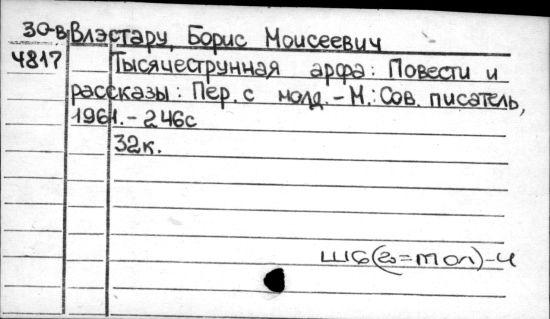 30-в Влэстару, Борис Моисеевич
4817 Тысячеструнная арфа: Повести и
рассказы: Пер. с молд. - М.: Сов. писатель,
1961. - 246с
32к.